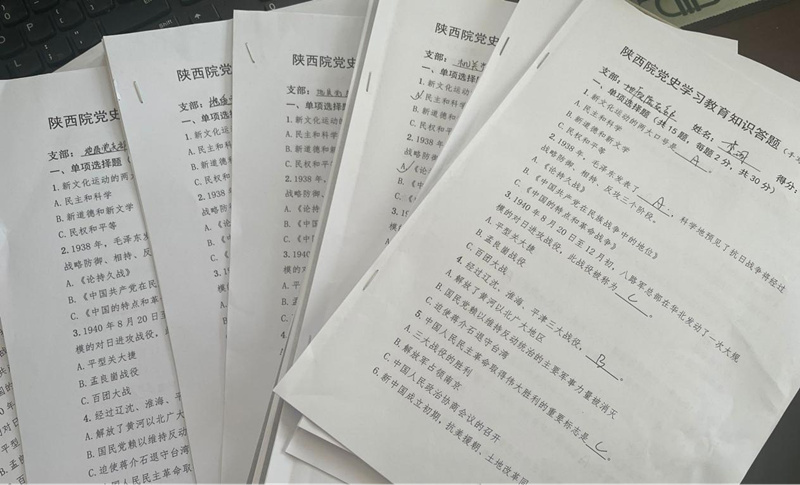 陕西院党史学习教育知识答题
支部： 姓名： 得分：
一、单项选择题（共15题，每题2分，共30分）
1.新文化运动的两大口号是 A 。
A.民主和科学
B.新道德和新文学
C.民权和平等
2.1938年，毛泽东发表了 A ，科学地预见了抗日战争将经过
战略防御、相持、反攻三个阶段。
A.《论持久战》
B.《中国共产党在民族战争中的地位》
C.《中国的特点和革命战争》
3.1940年8月20日至12月初，八路军总部在华北发动了一次大规
模的对日进攻战役，此战役被称为 C 。
A.平型关大捷
B.孟良崮战役
C.百团大战
4.经过辽沈、淮海、平津三大战役， B 。
A.解放了黄河以北广大地区
B.国民党赖以维持反动统治的主要军事力量被消灭
C.迫使蒋介石退守台湾
5.中国人民民主革命取得伟大胜利的重要标志是 C 。
A.三大战役的胜利
B.解放军占领南京
C.中国人民政治协商会议的召开
6.新中国成立初期，抗美援朝、土地改革同
陕西院党史
支部：
一、单项选择题（
1.新文化运动的两大
A.民主和科学
B.新道德和新文学
C.民权和平等
2.1938年，毛泽东发
战略防御、相持、反
A.《论持久战》
B.《中国共产党在民
C.《中国的特点和革
3.1940年8月20日至
模的对日进攻战役，
A.平型关大捷
B.孟良崮战役
C.百团大战
4.经过辽沈、淮海、平
A.解放了黄河以北广大
B.国民党赖以维持反动
C.迫使蒋介石退守台湾
陕西院党
支部：
一、单项选
1.新文化运
A.民主和科
B.新道德
C.民权和
2.1938
战略防御
陕西院党史
支部：
一、单项选择题
1.新文化运动的
A.民主和科学
B.新道德和
C.民权和平
2.1938年
战略防御
A.《论持
B.《中国
C.《中
3.1940
模的对
陕西院党史
支部：
一、单项选择题
1.新文化运动的
A.民主和科学
B.新道德和
C.民权和
2.1938年
战略防御
A.《论